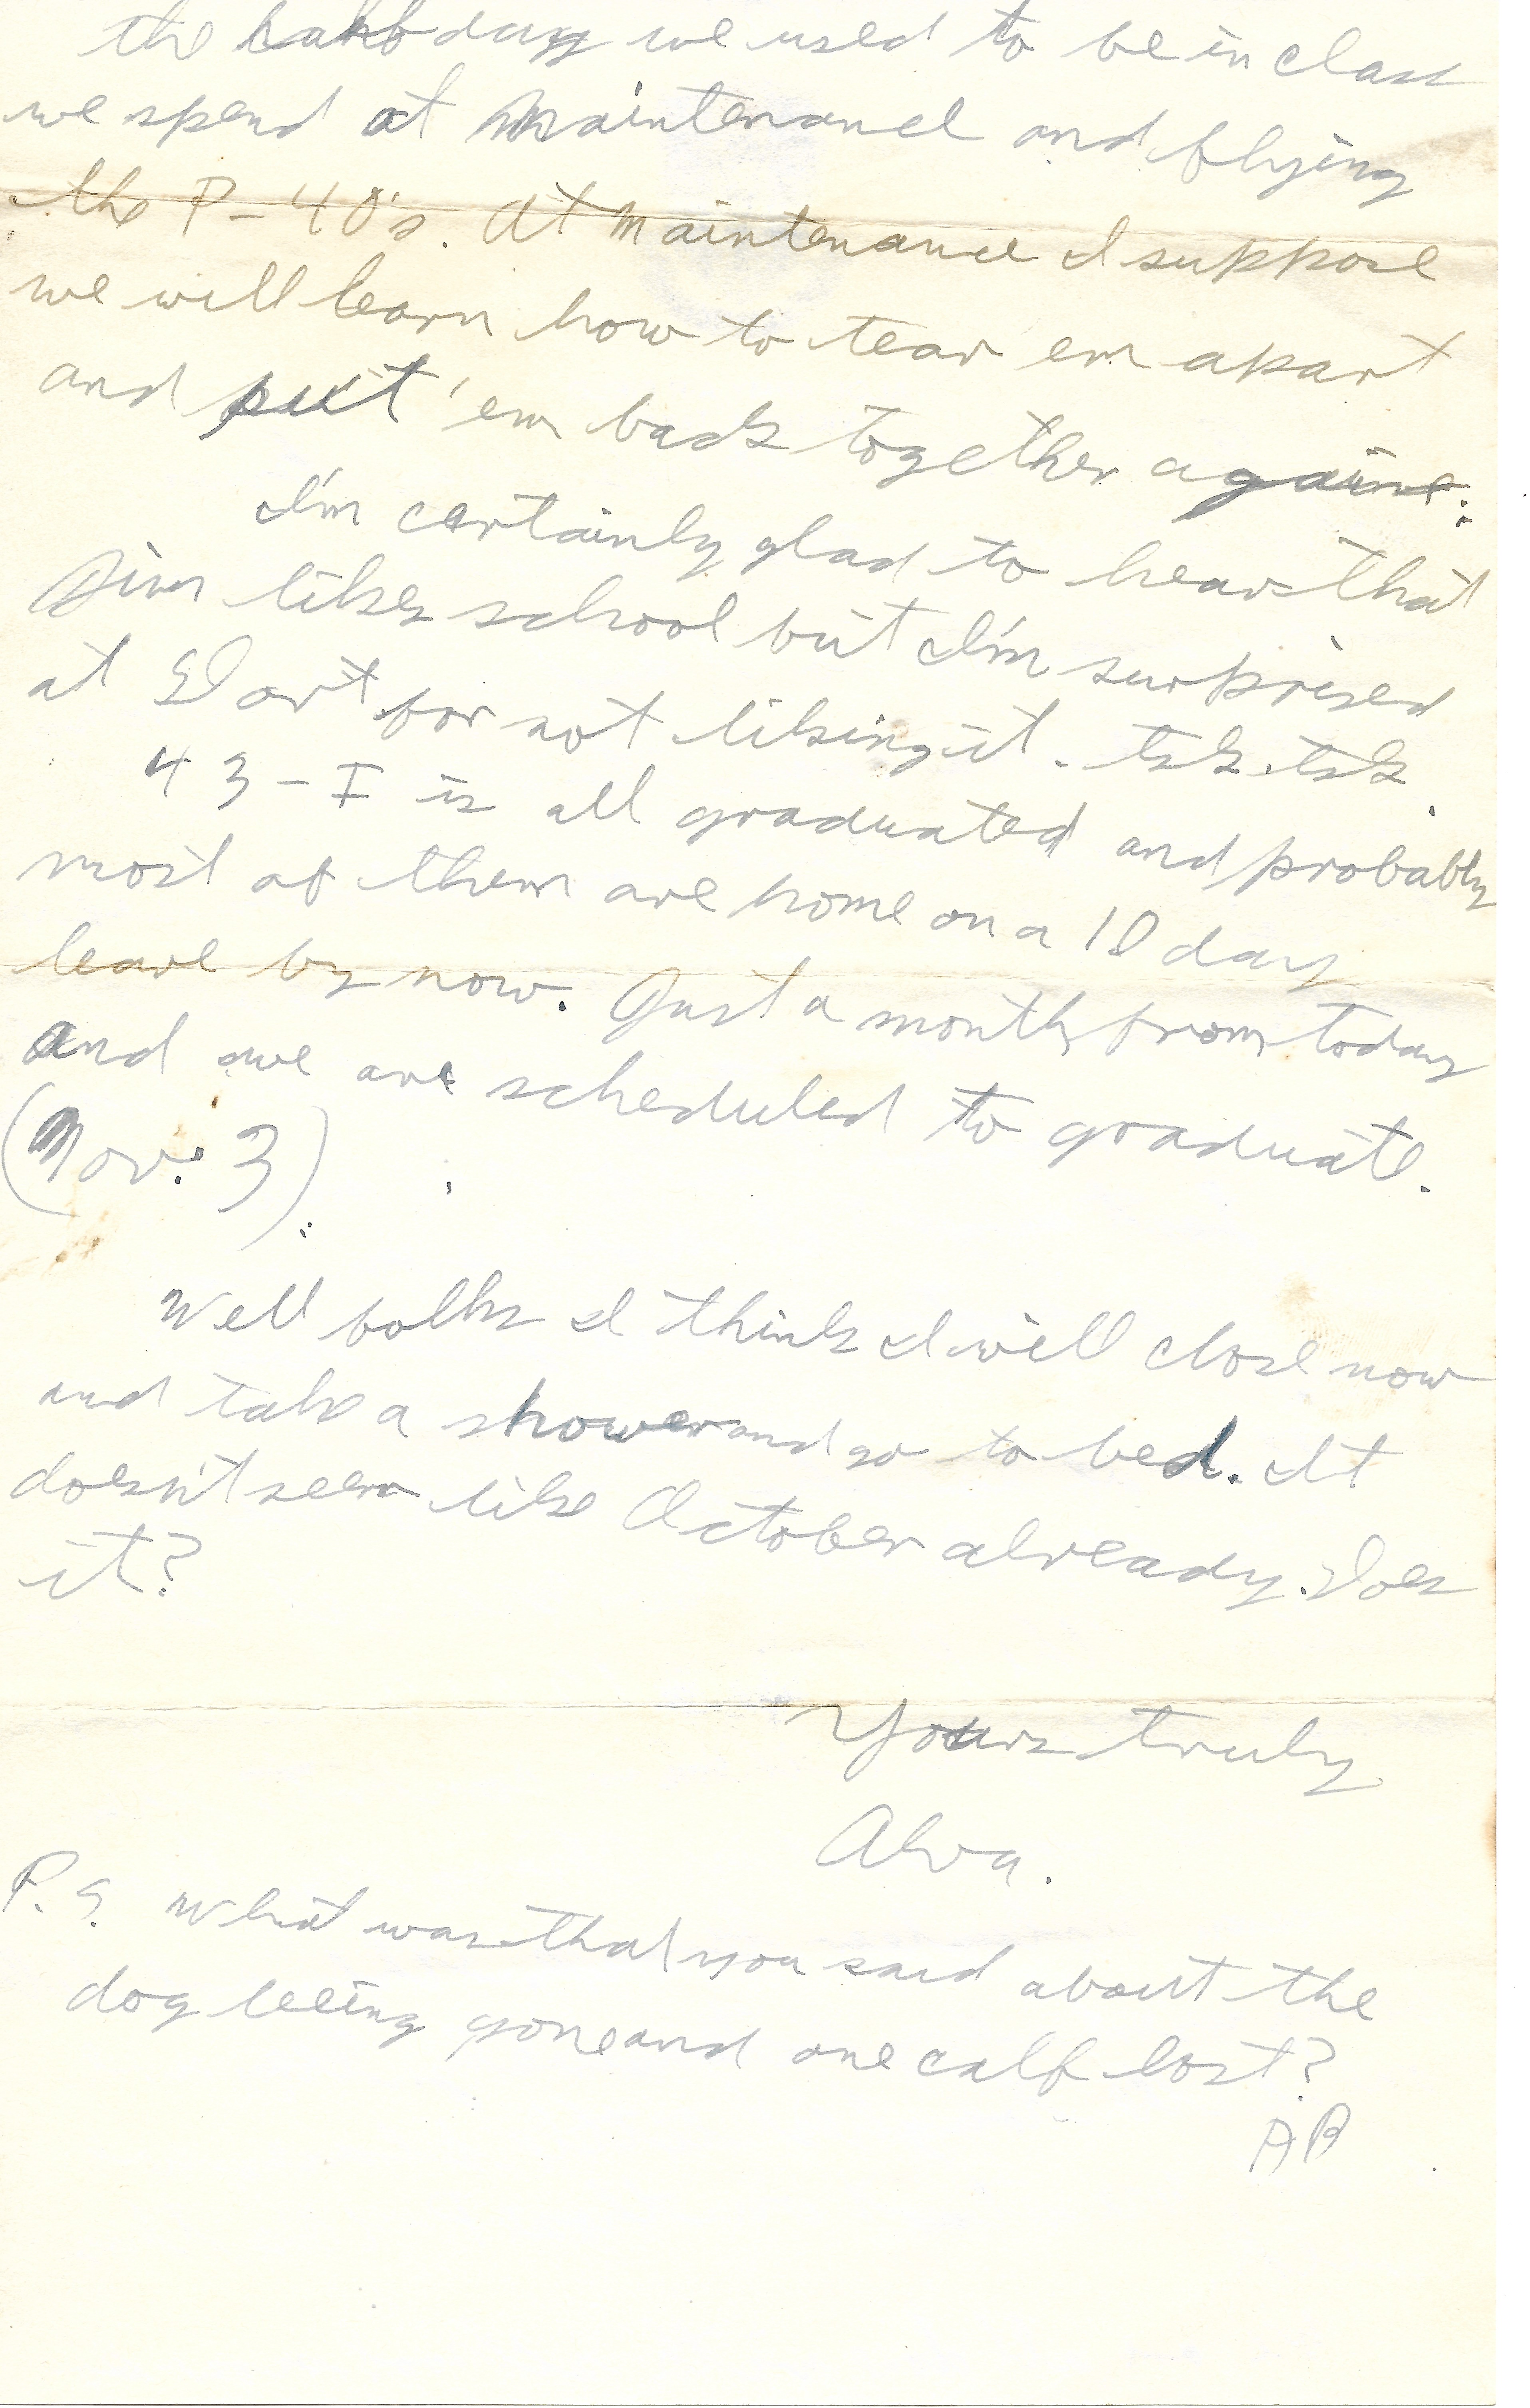 the half day we used to be in class
we spend at Maintenance and flying
the P-40's. At Maintenance I suppose
we will learn how to tear em apart
and put 'em back together again.
I'm certainly glad to hear that
Jim likes school but I'm surprised
at Dort for not liking it. tsk. tsk.
43-I is all graduated and probably
most of them are home on a 10 day
leave by now. Just a month from today
and we are scheduled to graduate.
(Nov. 3).
Well folks I think I will close now
and take a shower and go to bed. It
doesn't seem like October already. Does
it?
Yours truly
Alva.
P.S. What was that you said about the
dog being gone and one calf lost?
AB